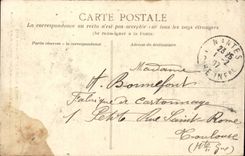 CARTE POSTALE
La correspondance au recto n'est pas acceptée par tous les pays étrangers
(Se renseigner à la Poste)
Partie réservée à la correspondance
Adresse du destinataire
NANTES
23 25
2
07
Madame
A. Bonnefont
Fabrique de Cartonnage
1 Rue Saint-Rome
Toulouse
(Hte Gne)